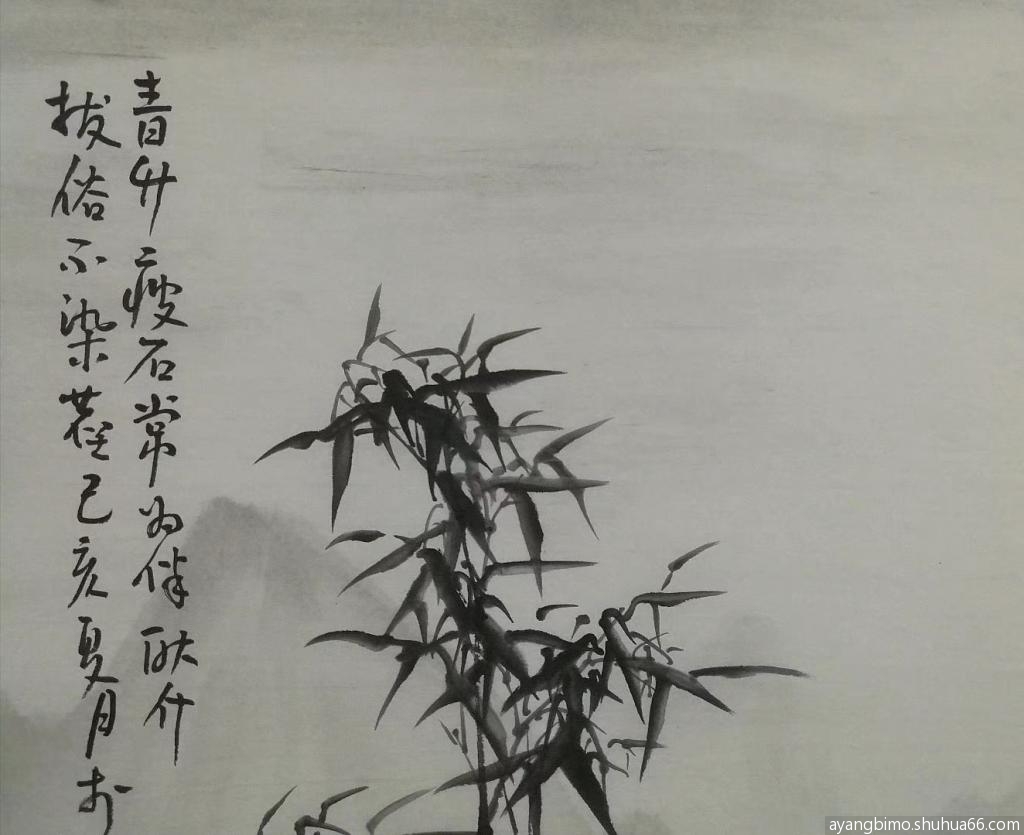 青竹瘦石常为伴耿介
拔俗不染己亥夏月於
ayangbimo.shuhua66.com